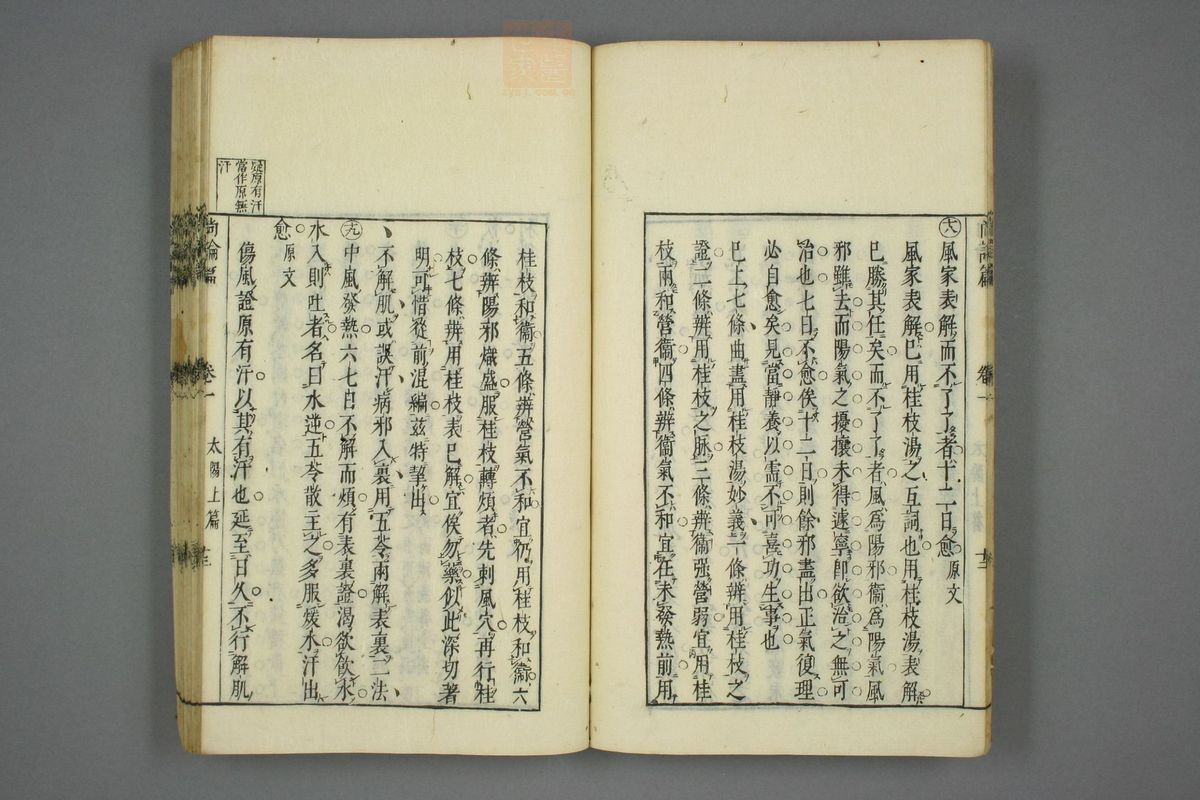 尚論篇 卷一
大 風家表解而不了了者十二日愈 原文
風家表解巳用桂枝湯之互詞也用桂枝湯表解
巳勝其任矣而不了了者風爲陽邪衞爲陽氣風
邪雖去而陽氣之擾攘未得遽寧卽欲治之無可
治也七日不愈俟十二日則餘邪盡出正氣復理
必自愈矣見當靜養以需不可喜功生事也
巳上七條曲盡用桂枝湯妙義一條辨用桂枝之
證二條辨用桂枝之脉三條辨衞强營弱宜用桂
枝兩和營衞四條辨衞氣不和宜在未發熱前用
桂枝和衞五條辨營氣不和宜仍用桂枝和衞六
條辨陽邪熾盛服桂枝轉煩者先刺風穴再行桂
枝七條辨用桂枝表巳解宜俟勿藥似此深切著
明可惜從前混編茲特拏出
不解肌或誤汗病邪入裏用五苓兩解表裏二法
九 中風發熱六七日不解而煩有表裏證渴欲飲水
水入則吐者名曰水逆五苓散主之多服煖水汗出
愈 原文
傷風證原有汗以其有汗也延至日久不行解肌
尚論篇 卷一 太陽上篇 廿三
疑原有汗
當作原無
汗